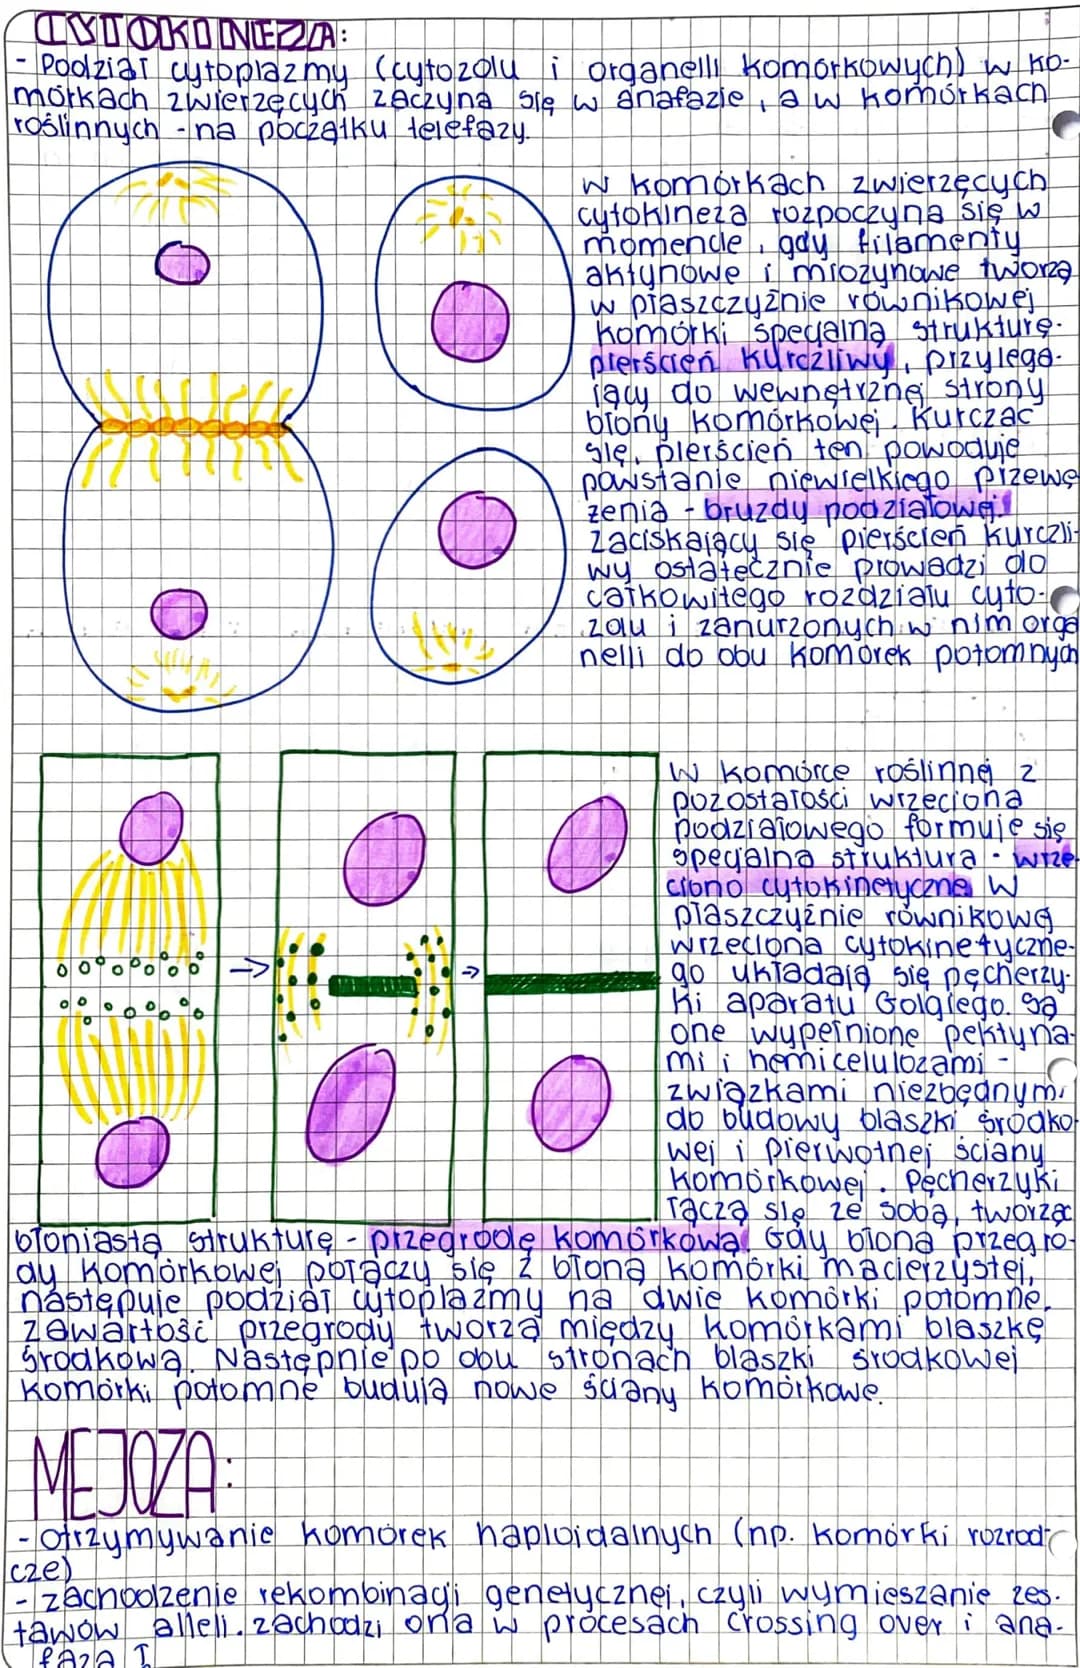 CYTOKINEZA:
- Podział cytoplazmy (cytozolu i organelli komórkowych) w ko-
mórkach zwierzęcych zaczyna się w anafazie, a w komórkach
roślinnych - na początku telefazy.
W komórkach zwierzęcych
cytokineza rozpoczyna się w
momencie, gdy filamenty
aktynowe i miozynowe tworzą
w płaszczyźnie równikowej
komórki specjalną strukturę-
pierścień kurczliwy, przylega-
jący do wewnętrznej strony
błony komórkowej. Kurcząc
się, pierścień ten powoduje
powstanie niewielkiego przewę
żenia - bruzdy podziałowej.
Zaciskający się pierścień kurczli-
wy ostatecznie prowadzi do
całkowitego rozdziału cyto-
zolu i zanurzonych w nim orga
nelli do obu komórek potomnych
W komórce roślinnej z
pozostałości wrzeciona
podziałowego formuje się
specjalna struktura - wrze-
ciono cytokinetyczne W
płaszczyźnie równikowej
wrzeciona cytokinetyczne-
go układają się pęcherzy-
ki aparatu Golgiego. Są
one wypełnione pektyna-
mi i hemicelulozami -
związkami niezbędnymi
do budowy blaszki środko-
wej i pierwotnej ściany
komórkowej. Pęcherzyki
łączą się ze sobą, tworząc
błoniastą strukturę - przegrodę komórkową. Gdy błona przegro-
dy komórkowej połączy się z błoną komórki macierzystej,
następuje podział cytoplazmy na dwie komórki potomne.
Zawartość przegrody tworzą między komórkami blaszkę
środkową. Następnie po obu stronach blaszki środkowej
komórki potomne budują nowe ściany komórkowe.
MEJOZA:
- otrzymywanie komórek haploidalnych (np. komórki rozrod-
cze)
- zachodzenie rekombinacji genetycznej, czyli wymieszanie zes-
tawów alleli. zachodzi ona w procesach crossing over i ana-
faza I